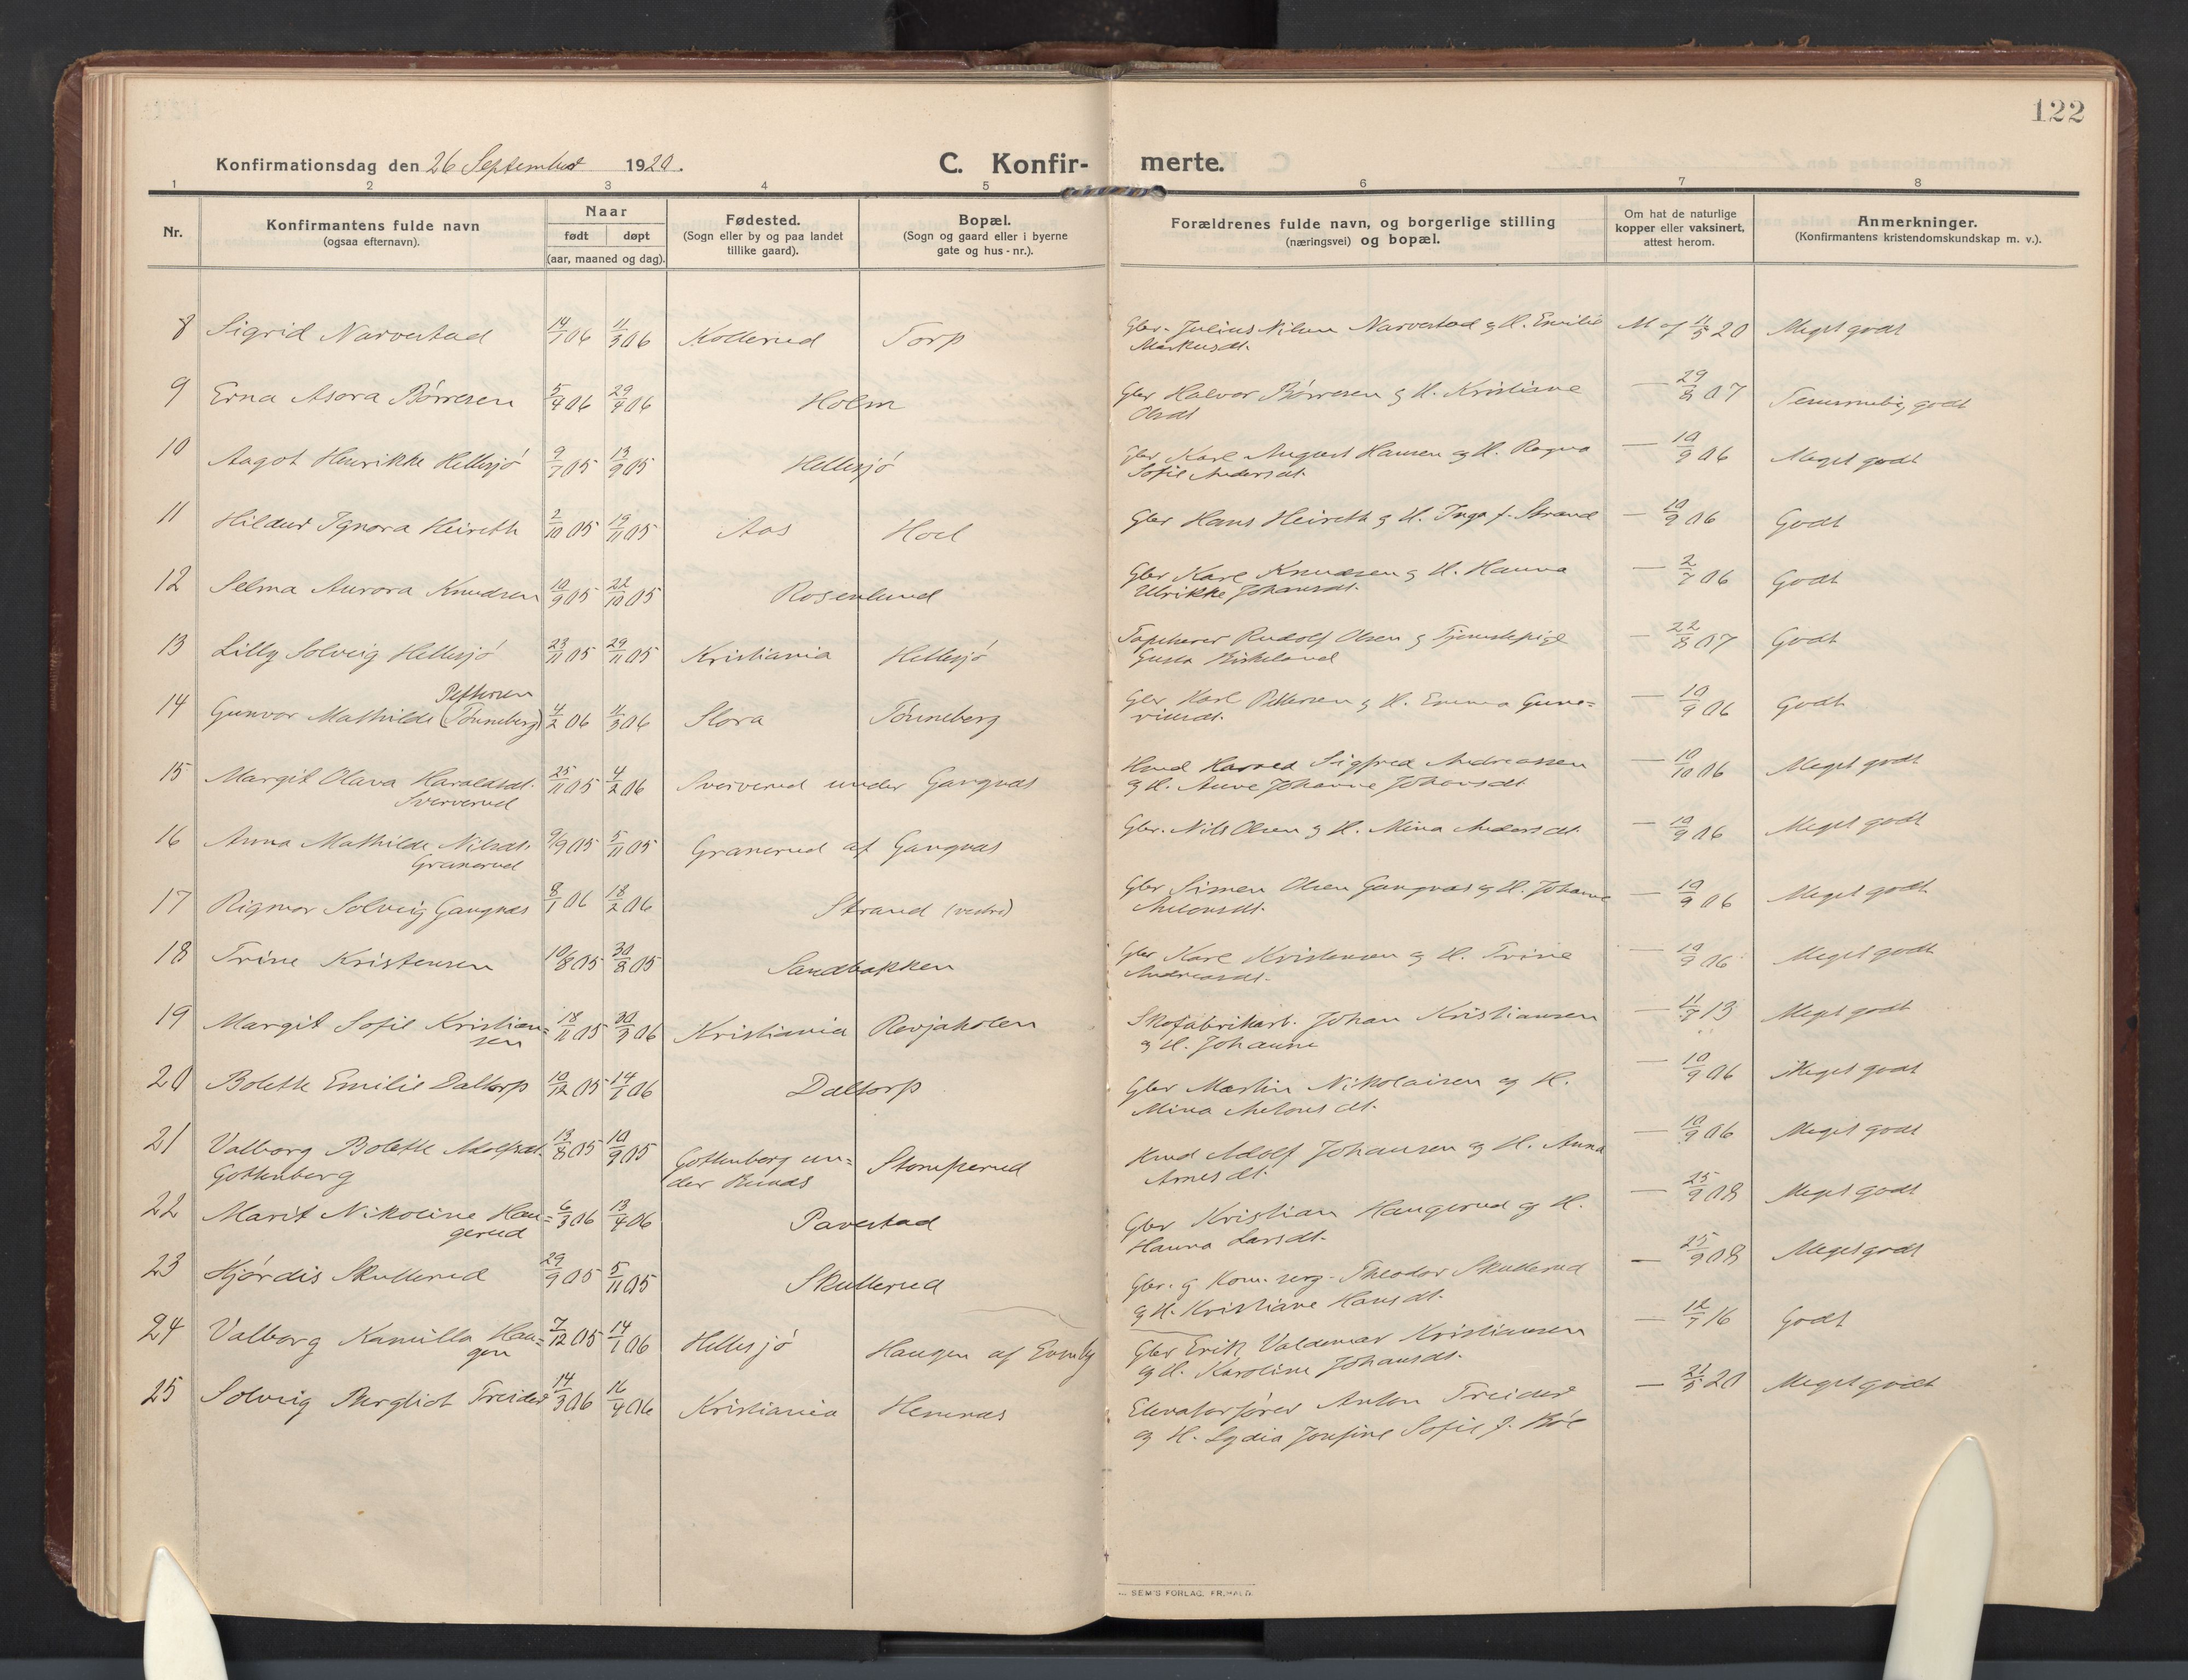 122
Konfirmationsdag den 26 September 1920.
C. Konfir-
merte.
1 2 3 4 5 6 7 8
Nr.
Konfirmantens fulde navn
(ogsaa efternavn).
Naar
født døpt
(aar, maaned og dag).
Fødested.
(Sogn eller by og paa landet
tillike gaard).
Bopæl.
(Sogn og gaard eller i byerne
gate og hus-nr.).
Forældrenes fulde navn, og borgerlige stilling
(næringsvei) og bopæl.
Om hat de naturlige
kopper eller vaksinert,
attest herom.
Anmerkninger.
(Konfirmantens kristendomskundskap m. v.).
8 Sigrid Narvestad 14/1 06 11/3 06 Kollerud Torp Gbr. Julius Nilsen Narvestad og H. Emilie 11/5 20 Meget godt
Markusdt.
9 Erna Asora Börresen 5/4 06 29/4 06 Holm Gbr Halvor Börresen og H. Kristiane — 29/8 07 godt
Olsdt
10 Aagot Henrikke Hellesjö 9/7 05 13/9 05 Hellesjö Gbr Karl August Hansen og H. Ragna — 10/9 06 Meget godt
Sofie Andersdt.
11 Hildur Ignora Heireth 2/10 05 19/11 05 Aas Hoel Gbr Hans Heireth og H. Inga f. Strand — 10/9 06 Godt
12 Selma Aurora Knudsen 10/9 05 22/10 05 Rosenlund Gbr Karl Knudsen og H. Hanna — 2/7 06 Godt
Ulrikke Johansdt.
13 Lilly Solveig Hellesjö 23/11 05 29/11 05 Kristiania Hellesjö Rudolf Olsen og Tjenestepige — 22/8 07 Godt
Gusta
Pettersen
14 Gunvor Mathilde (Tönneberg) 4/2 06 11/3 06 Slora Tönneberg Gbr Karl Pettersen og H. Emma Gune= — 10/9 06 Godt
riusdt.
15 Margit Olava Haraldsdt. 25/11 05 4/2 06 Sververud under Gangnæs Hmd Harald Sigfred Andreassen — 10/10 06 Meget godt
Sververud og H. Anne Johanne Johansdt
16 Anna Mathilde Nilsdt. 9/9 05 5/11 05 Granerud af Gangnæs Gbr. Nils Olsen og H. Mina Andersdt. — 10/9 06 Meget godt
Granerud
17 Rigmor Solveig Gangnæs 8/1 06 18/2 06 Strand (vestre) Gbr Simen Olsen Gangnæs og H. Johanne — 10/9 06 Meget godt
Antonsdt.
18 Trine Kristensen 10/8 05 30/8 05 Sandbakken Gbr Karl Kristensen og H. Trine — 10/9 06 Meget godt
Andreasdt.
19 Margit Sofie Kristian= 18/11 05 30/3 06 Kristiania Revjaholen Skofabrikarb. Johan Kristiansen — 11/7 13 Meget godt
sen og H. Johanne
20 Bolette Emilie Daltorp 10/12 05 14/1 06 Daltorp Gbr Martin Nikolaisen og H. — 10/9 06 Meget godt
Mina Antonsdt.
21 Valborg Bolette Adolfsdt. 13/8 05 10/9 05 Gottenborg un= Stomperud Hmd Adolf Johansen og H. Anna — 10/9 06 Meget godt
Gottenberg der Bunæs Arnesdt.
22 Marit Nikoline Hau= 6/3 06 13/4 06 Pavestad Gbr Kristian Haugerud og H. — 25/9 08 Meget godt
gerud Hanna Larsdt.
23 Hjördis Skullerud 29/9 05 5/11 05 Skullerud Gbr. og Kom. Theodor Skullerud — 25/9 08 Meget godt
og H. Kristiane Hansdt.
24 Valborg Kamilla Hau= 7/12 05 14/1 06 Hellesjö Haugen af Evenby Gbr Erik Valdemar Kristiansen — 12/7 16 Godt
gen og H. Karoline Johansdt.
25 Solveig Bergliot Treider 14/3 06 16/4 06 Kristiania Hemnæs Elevatorförer Anton Treider — 21/5 20 Meget godt
og H. Lydia Josefine Sofie f. Böe
SEM'S FORLAG, FR.HALD.